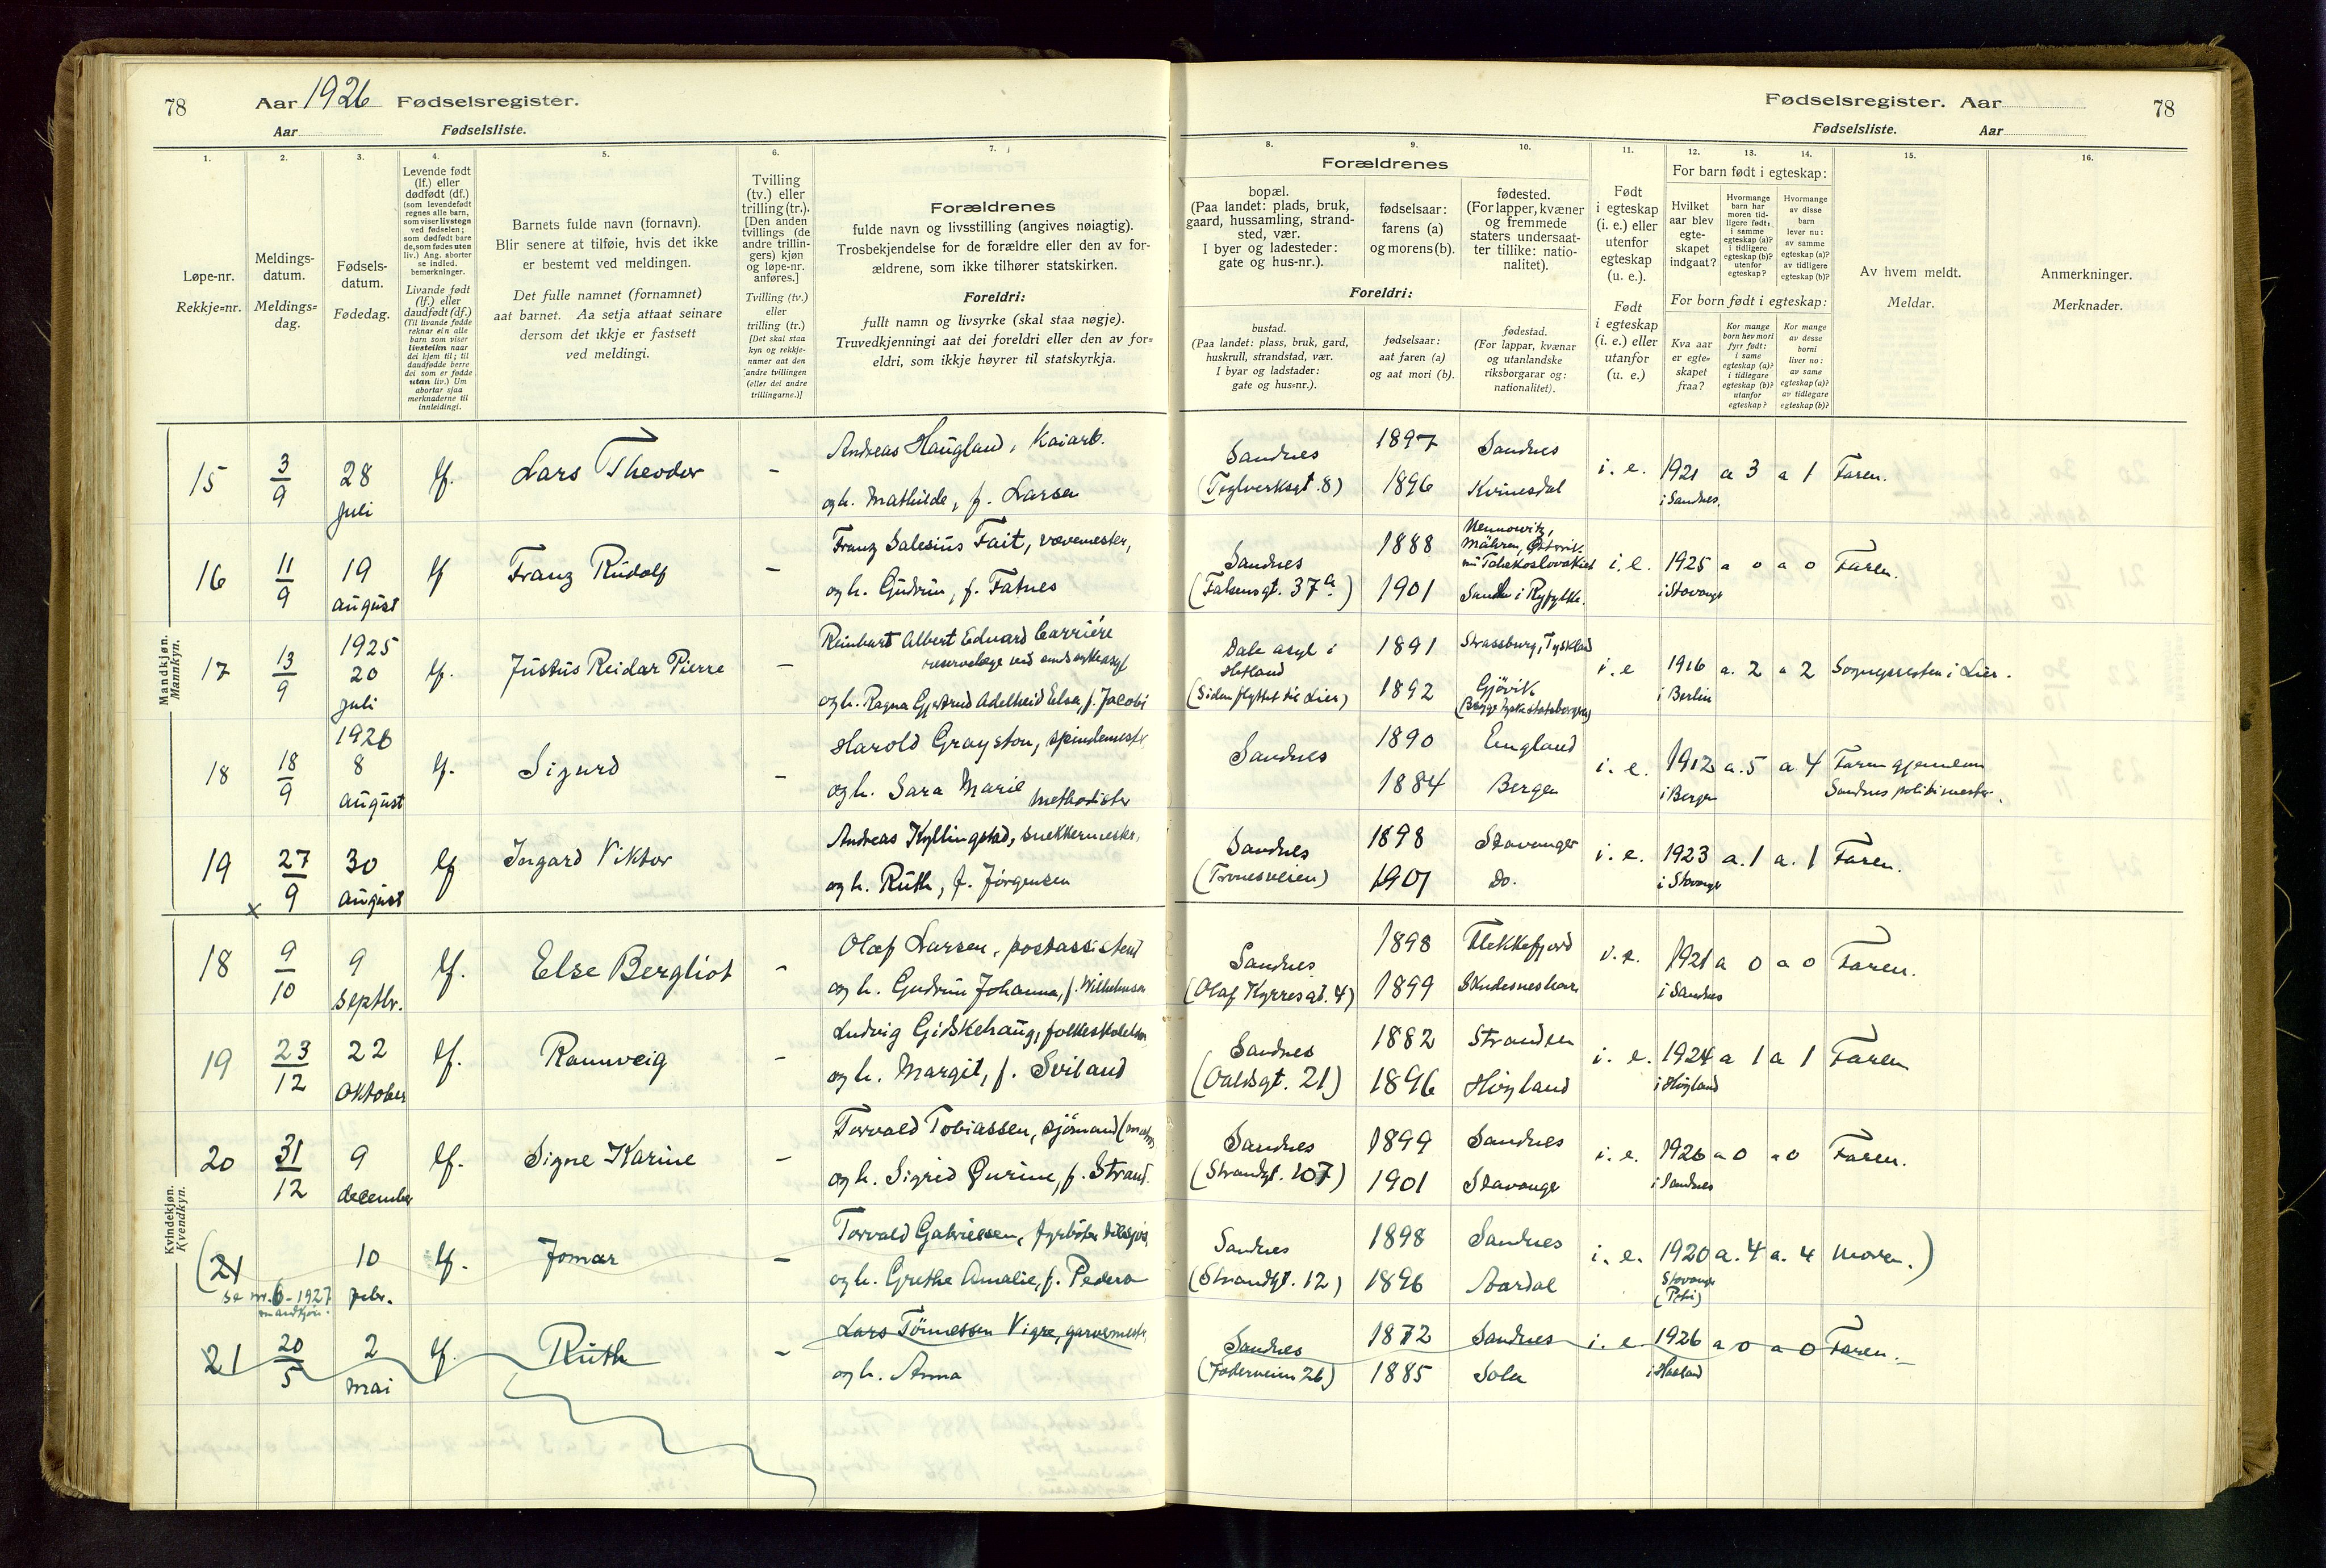 78 Aar 1926 Fødselsregister.
Aar Fødselsliste.
Fødselsregister. Aar 78
Fødselsliste. Aar
1. 2. 3. 4. 5. 6. 7. 8. 9. 10. 11. 12. 13. 14. 15. 16.
Løpe-nr.
Rekkje=nr.
Meldings-
datum.
Meldings=
dag.
Fødsels-
datum.
Fødedag.
Levende født
(lf.) eller
dødfødt (df.)
(som levendefødt
regnes alle barn,
som viser livstegn
ved fødselen;
som dødfødt bare
de, som fødes uten
liv.) Ang. aborter
se indled.
bemerkninger.
Livande født
(lf.) eller
daudfødt (df.)
(Til livande fødde
reknar ein alle
barn som viser
livsteikn naar
dei kjem til; til
daudfødde berre
dei som er fødde
utan liv.) Um
abortar sjaa
merknaderne til
innleidingi.
Barnets fulde navn (fornavn).
Blir senere at tilføie, hvis det ikke
er bestemt ved meldingen.
Det fulle namnet (fornamnet)
aat barnet. Aa setja attaat seinare
dersom det ikkje er fastsett
ved meldingi.
Tvilling
(tv.) eller
trilling (tr.).
[Den anden
tvillings (de
andre trillin-
gers) kjøn
og løpe-nr.
anføres.]
Tvilling (tv.)
eller
trilling (tr.)
[Det skal staa
kyn og rekkje-
numer aat den
andre tvillingen
(eller dei andre
trillingarne.)]
Forældrenes
fulde navn og livsstilling (angives nøiagtig).
Trosbekjendelse for de forældre eller den av for-
ældrene, som ikke tilhører statskirken.
Foreldri:
fullt namn og livsyrke (skal staa nøgje).
Truvedkjenningi aat dei foreldri eller den av for=
eldri, som ikkje høyrer til statskyrkja.
Forældrenes
bopæl.
(Paa landet: plads, bruk,
gaard, hussamling, strand-
sted, vær.
I byer og ladesteder:
gate og hus-nr.).
fødselsaar:
farens (a)
og morens (b).
fødested.
(For lapper, kvæner
og fremmede
staters undersaat-
ter tillike: natio-
nalitet).
Foreldri:
bustad.
(Paa landet: plass, bruk, gard,
huskrull, strandstad, vær.
I byar og ladstader:
gate og hus=nr.).
fødselsaar:
aat faren (a)
og aat mori (b).
fødestad.
(For lappar, kvænar
og utanlandske
riksborgarar og:
nationalitet).
Født
i egteskap
(i. e.) eller
utenfor
egteskap
(u. e.).
Født
i egteskap
(i. e.) eller
utanfor
(u. e.)
For barn født i egteskap:
Hvilket
aar blev
egte-
skapet
indgaat?
Hvormange
barn har
moren tid-
ligere født:
i samme
egteskap (a)?
i tidligere
egteskap (b)?
utenfor
egteskap?
Hvormange
av disse
barn
lever nu:
av samme
egteskap (a)?
av tidligere
egteskap (b)?
For born født i egteskap:
Kva aar
er egte=
skapet
fraa?
Kor mange
born hev mori
fyrr født:
i same
egteskap (a)?
i tidlegare
egteskap (b)?
utanfor
egteskap?
Kor mange
av desse
borni
liver no:
av same
egteskap (a)?
av tidlegare
egteskap (b)?
Av hvem meldt.
Meldar.
Anmerkninger.
Merknader.
Mandkjøn.
Mannkyn.
15 3/9 28 juli lf. Lars Theodor – Andreas Haugland, Kaiarb.
og h. Mathilde, f. Larsen
Sandnes (Teglverksgt. 8) 1897 1896 Sandnes Kvinesdal i. e. 1921 i Sandnes. a 3 a 1 Faren.
16 11/9 19 august lf Franz Rudolf – Franz Salesius Fait, vævemester,
og h. Gudrun, f. Fatnes
Sandnes (Falsensgt. 37a.) 1888 1901 Mähren, nu Tchekoslovakiet Sand i Ryfylke. i. e. 1925 i Stavanger a 0 a 0 Faren.
17 13/9 1925 20 juli lf. Justus Reidar Pierre – Reinhart Albert Eduard Carriére
reservelæge ved sindssykeasyl
og h. Ragna Gjertrud Adelheid Elsa, f. Jacobi
Dale asyl i Hetland (Siden flyttet til Lier) 1891 1892 Strassburg, Tyskland Gjövik (Begge tyske statsborgere) i. e 1916 i Berlin a. 2 a 2 Sognepresten i Lier.
18 18/9 1926 8 august lf. Sigurd – Harold Grayston, spindemester
og h. Sara Marie methodister
Sandnes 1890 1884 England Bergen i. e. 1912 i Bergen a. 5 a. 4 Faren gjennem
Sandnes politimester.
19 27/9 30 august lf Ingard Viktor Andreas Kyllingstad, snekkermester,
og h. Ruth, f. Jørgensen
Sandnes (Tronesveien) 1898 1901 Stavanger do. i. e. 1923 i Stavanger a. 1 a. 1 Faren.
x
Kvindekjøn.
Kvendkyn.
18 9/10 9 septbr. lf. Else Bergliot – Olaf Larsen, postassistent
og h. Gudrun Johanna, f. Wilhelmsen
Sandnes (Olaf Kyrresgt. 4) 1898 1899 Flekkefjord Skudeneshavn i. e. 1921 i Sandnes a 0 a 0 Faren.
19 23/12 22 oktober lf. Rannveig – Ludvig Gidskehaug, folkeskolelærer
og h. Margit, f. Sviland
Sandnes (Oaldsgt. 21) 1882 1896 Stranden Höyland i. e. 1924 i Höyland a 1 a 1 Faren
20 31/12 9 december lf. Signe Karine – Torvald Tobiassen, sjömand (matros)
og h. Sigrid Gurine, f. Strand.
Sandnes (Strandgt. 107) 1899 1901 Sandnes Stavanger i. e. 1926 i Sandnes a 0 a 0 Faren.
(21 10 febr. lf. Jomar – Torvald Gabrielsen, fyrböter tilsjös
se nr. 6 - 1927 mandkjön.
og h. Grethe Amalie, f. Pedersen
Sandnes (Strandgt. 12) 1898 1896 Sandnes Aardal i. e. 1920 Stavanger (Petri) a. 4 a. 4 Moren.)
21 20/5 2 mai lf. Ruth – Lars Tönnessen Vigre, garvermester
og h. Anna
Sandnes (Jæderveien 26) 1872 1885 Sandnes Sola i. e. 1926 i Haaland a 0 a 0 Faren.